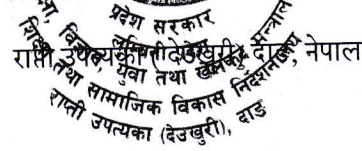 प्रदेश सरकार
लुम्बिनी प्रदेश
युवा तथा खेलकुद मन्त्रालय
राप्ती उपत्यका (देउखुरी), दाङ, नेपाल
शिक्षा तथा सामाजिक विकास निर्देशनालय
राप्ती उपत्यका (देउखुरी), दाङ